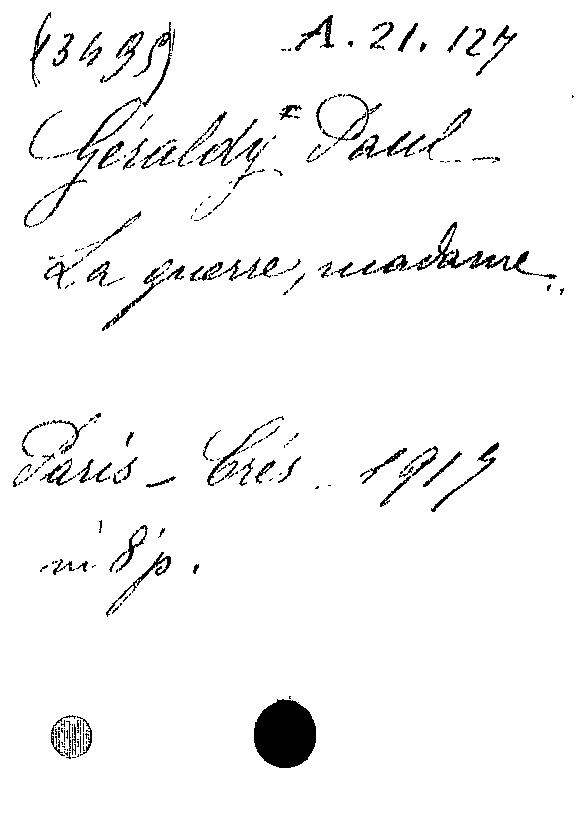 (3495) A. 21. 127
Géraldy Paul
La guerre, madame..
Paris - Crés - 1919
in 8°p.